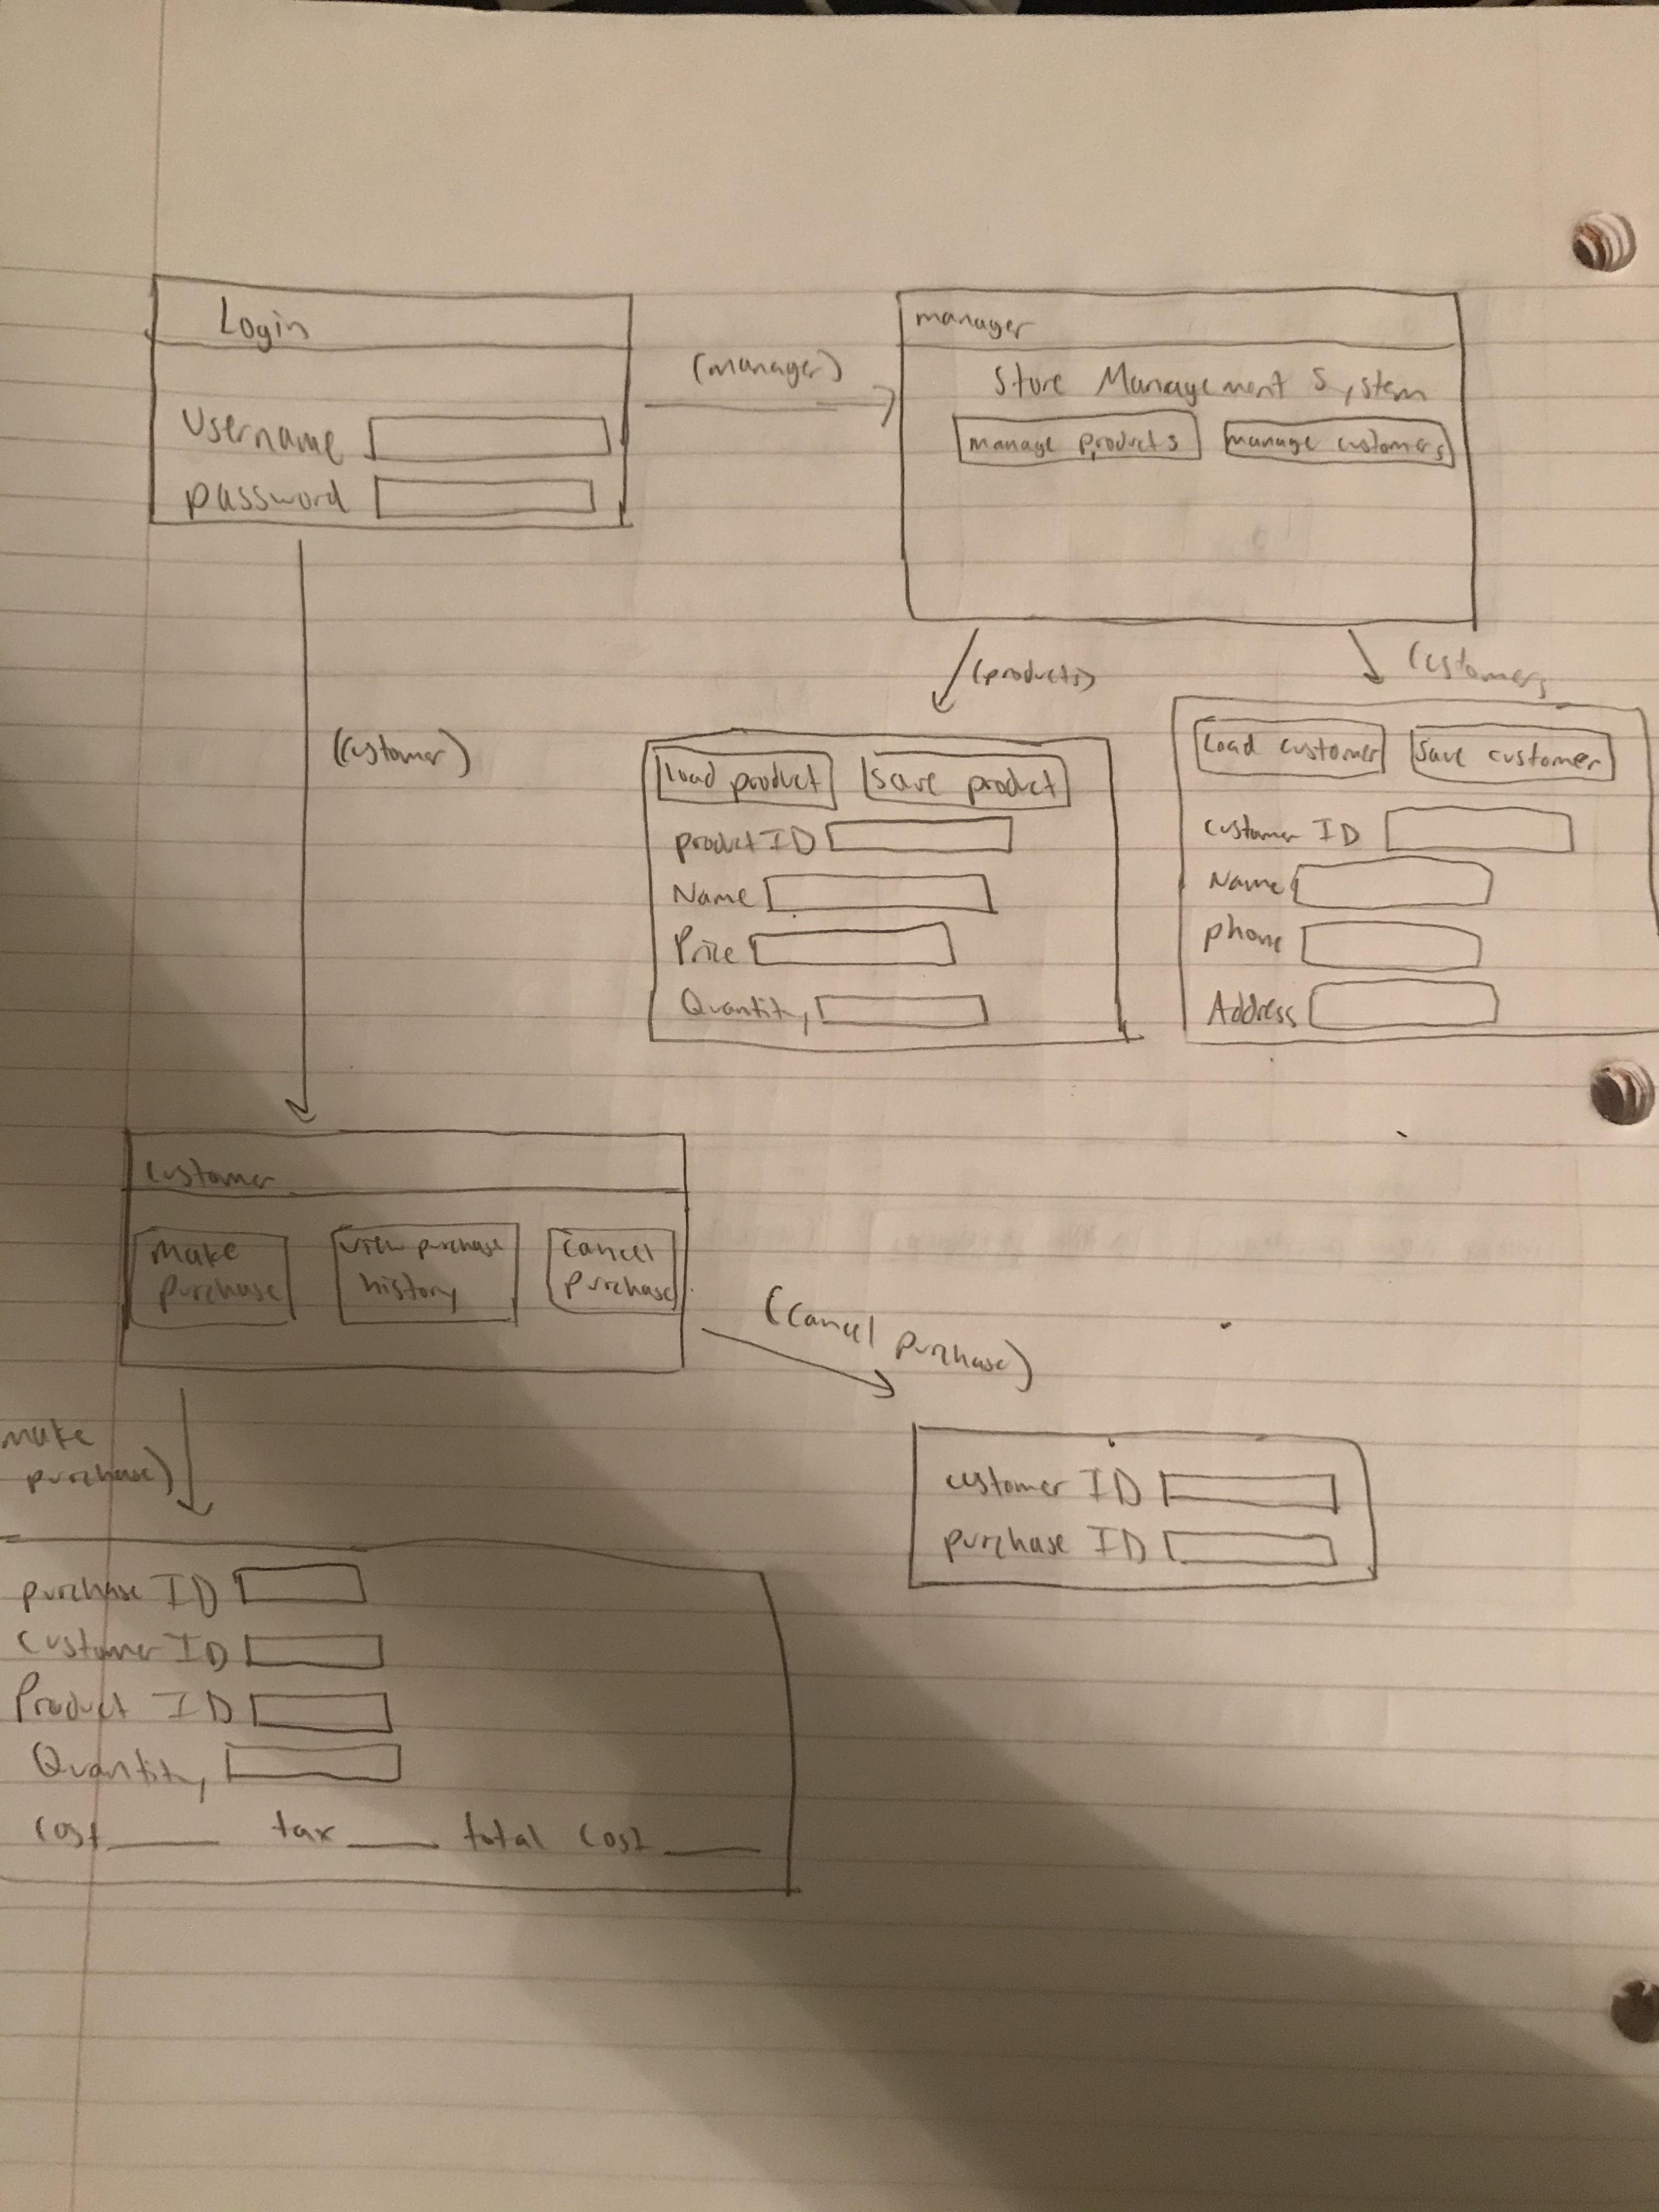 Login
Username
password
(manager)
manager
Store Management System
manage products
manage customers
(products)
(customers
Load product
save product
product ID
Name
Price
Quantity
Load customer
Save customer
customer ID
Name
phone
Address
(customer)
customer
Make
purchase
view purchase
history
cancel
purchase
(cancel purchase)
customer ID
purchase ID
make
purchase)
purchase ID
Customer ID
Product ID
Quantity
cost
tax
total cost